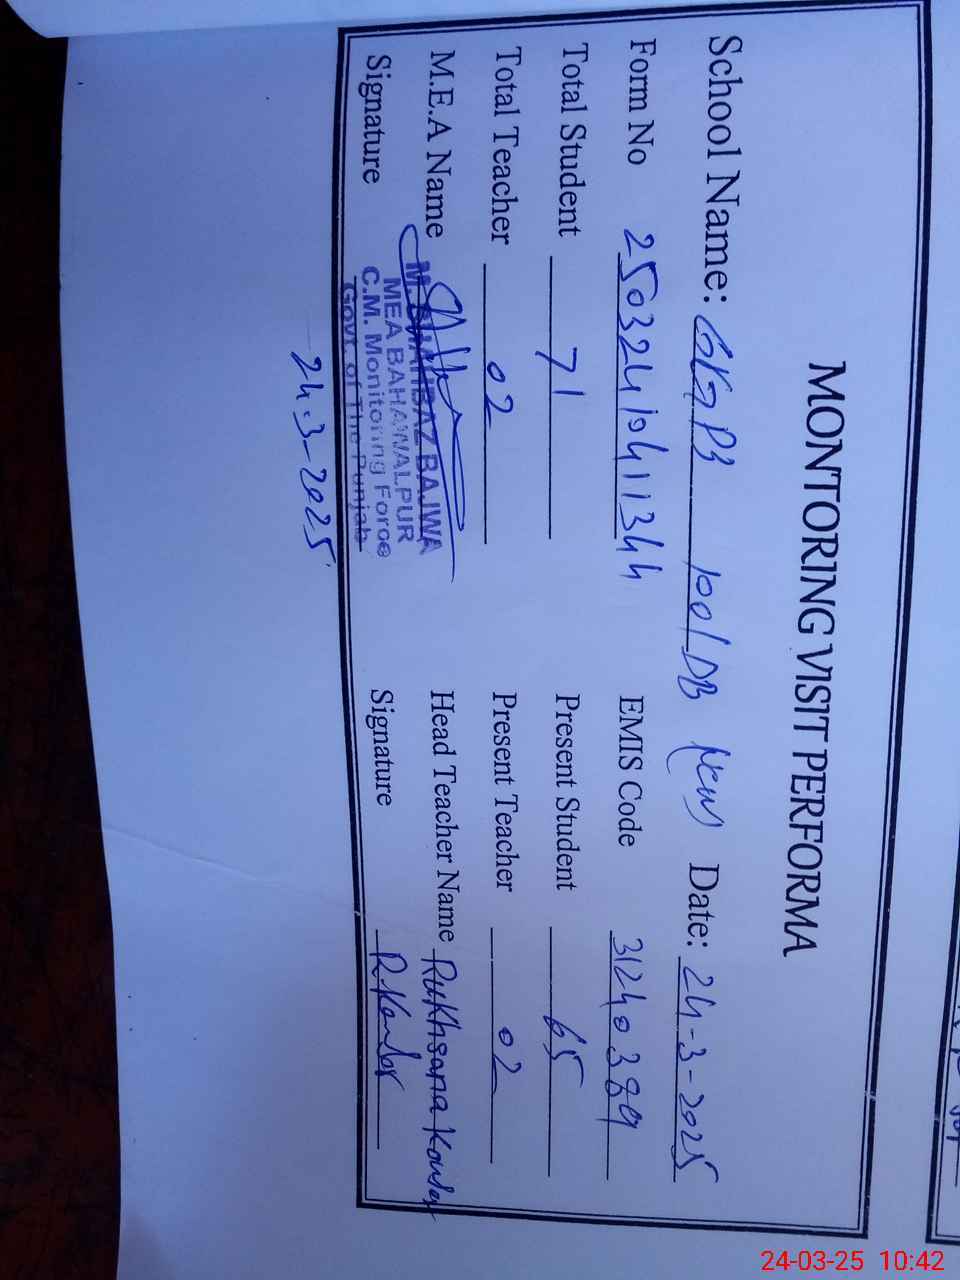 MONTORING VISIT PERFORMA
School Name: GGPS 100/DB (New) Date: 24-3-2025
Form No 2503241041344 EMIS Code 31240389
Total Student 71 Present Student 65
Total Teacher 02 Present Teacher 02
M.E.A Name Head Teacher Name Rukhsana Kousar
M. SHAHBAZ BAJWA
MEA BAHAWALPUR
C.M. Monitoring Force
Govt. of The Punjab
Signature Signature R.Kousar
24-3-2025
24-03-25 10:42